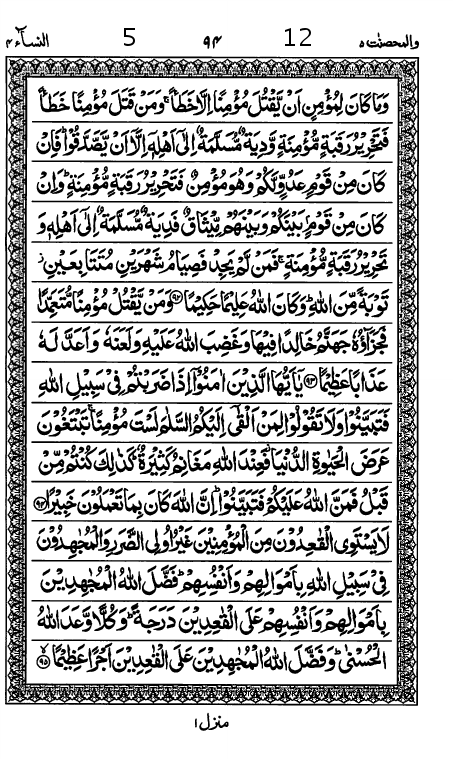 والمحصنت ۵ 12 ۹۴ 5 النسآء ۴
وَمَا كَانَ لِمُؤْمِنٍ اَنْ يَّقْتُلَ مُؤْمِنًا اِلَّا خَطَـًٔا ۚ وَمَنْ قَتَلَ مُؤْمِنًا خَطَـًٔا
فَتَحْرِيْرُ رَقَبَةٍ مُّؤْمِنَةٍ وَّدِيَةٌ مُّسَلَّمَةٌ اِلٰٓى اَهْلِهٖۤ اِلَّاۤ اَنْ يَّصَّدَّقُوْا ؕ فَاِنْ
كَانَ مِنْ قَوْمٍ عَدُوٍّ لَّكُمْ وَهُوَ مُؤْمِنٌ فَتَحْرِيْرُ رَقَبَةٍ مُّؤْمِنَةٍ ؕ وَاِنْ
كَانَ مِنْ قَوْمٍۭ بَيْنَكُمْ وَبَيْنَهُمْ مِّيْثَاقٌ فَدِيَةٌ مُّسَلَّمَةٌ اِلٰٓى اَهْلِهٖ وَ
تَحْرِيْرُ رَقَبَةٍ مُّؤْمِنَةٍ ۚ فَمَنْ لَّمْ يَجِدْ فَصِيَامُ شَهْرَيْنِ مُتَتَابِعَيْنِ ؗ
تَوْبَةً مِّنَ اللّٰهِ ؕ وَكَانَ اللّٰهُ عَلِيْمًا حَكِيْمًا ﴿۹۲﴾ وَمَنْ يَّقْتُلْ مُؤْمِنًا مُّتَعَمِّدًا
فَجَزَآؤُهٗ جَهَنَّمُ خَالِدًا فِيْهَا وَغَضِبَ اللّٰهُ عَلَيْهِ وَلَعَنَهٗ وَاَعَدَّ لَهٗ
عَذَابًا عَظِيْمًا ﴿۹۳﴾ يٰۤاَيُّهَا الَّذِيْنَ اٰمَنُوْۤا اِذَا ضَرَبْتُمْ فِيْ سَبِيْلِ اللّٰهِ
فَتَبَيَّنُوْا وَلَا تَقُوْلُوْا لِمَنْ اَلْقٰۤى اِلَيْكُمُ السَّلٰمَ لَسْتَ مُؤْمِنًا ۚ تَبْتَغُوْنَ
عَرَضَ الْحَيٰوةِ الدُّنْيَا ؗ فَعِنْدَ اللّٰهِ مَغَانِمُ كَثِيْرَةٌ ؕ كَذٰلِكَ كُنْتُمْ مِّنْ
قَبْلُ فَمَنَّ اللّٰهُ عَلَيْكُمْ فَتَبَيَّنُوْا ؕ اِنَّ اللّٰهَ كَانَ بِمَا تَعْمَلُوْنَ خَبِيْرًا ﴿۹۴﴾
لَا يَسْتَوِى الْقٰعِدُوْنَ مِنَ الْمُؤْمِنِيْنَ غَيْرُ اُولِى الضَّرَرِ وَالْمُجٰهِدُوْنَ
فِيْ سَبِيْلِ اللّٰهِ بِاَمْوَالِهِمْ وَاَنْفُسِهِمْ ؕ فَضَّلَ اللّٰهُ الْمُجٰهِدِيْنَ
بِاَمْوَالِهِمْ وَاَنْفُسِهِمْ عَلَى الْقٰعِدِيْنَ دَرَجَةً ؕ وَكُلًّا وَّعَدَ اللّٰهُ
الْحُسْنٰى ؕ وَفَضَّلَ اللّٰهُ الْمُجٰهِدِيْنَ عَلَى الْقٰعِدِيْنَ اَجْرًا عَظِيْمًا ﴿۹۵﴾
منزل ۱